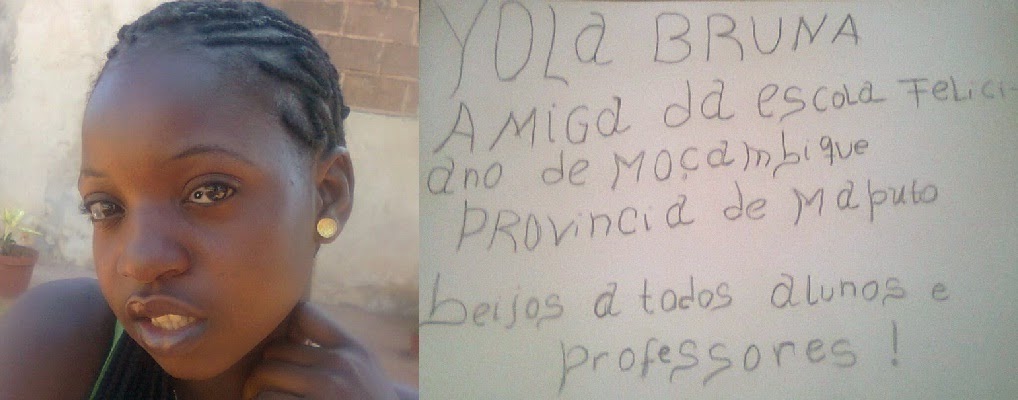 YOLa BRUNA
AMiGa da escola Felici-
ano de Moçambique
PROvincia de Maputo
beijos a todos alunos e
professores !